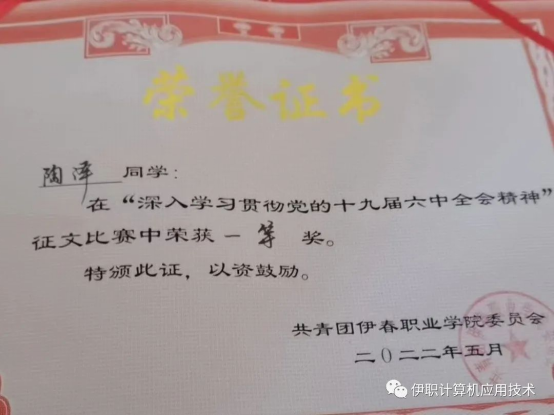 荣誉证书
陶泽 同学：
在“深入学习贯彻党的十九届六中全会精神”
征文比赛中荣获 一等 奖。
特颁此证，以资鼓励。
共青团伊春职业学院委员会
二〇二二年五月
伊职计算机应用技术